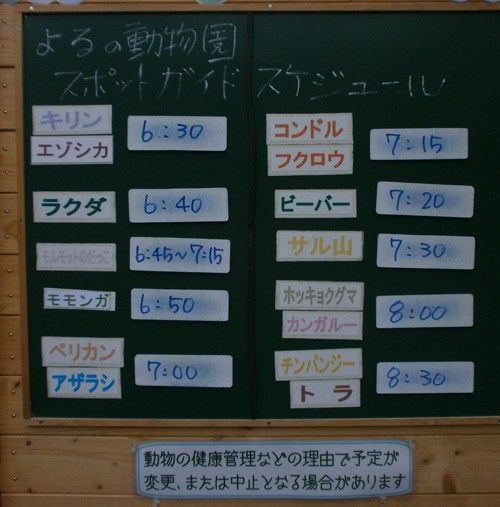 よるの動物園
スポットガイド スケジュール
キリン
エゾシカ
6:30
ラクダ
6:40
モルモットのだっこ
6:45~7:15
モモンガ
6:50
ペリカン
アザラシ
7:00
コンドル
フクロウ
7:15
ビーバー
7:20
サル山
7:30
ホッキョクグマ
カンガルー
8:00
チンパンジー
トラ
8:30
動物の健康管理などの理由で予定が
変更、または中止となる場合があります